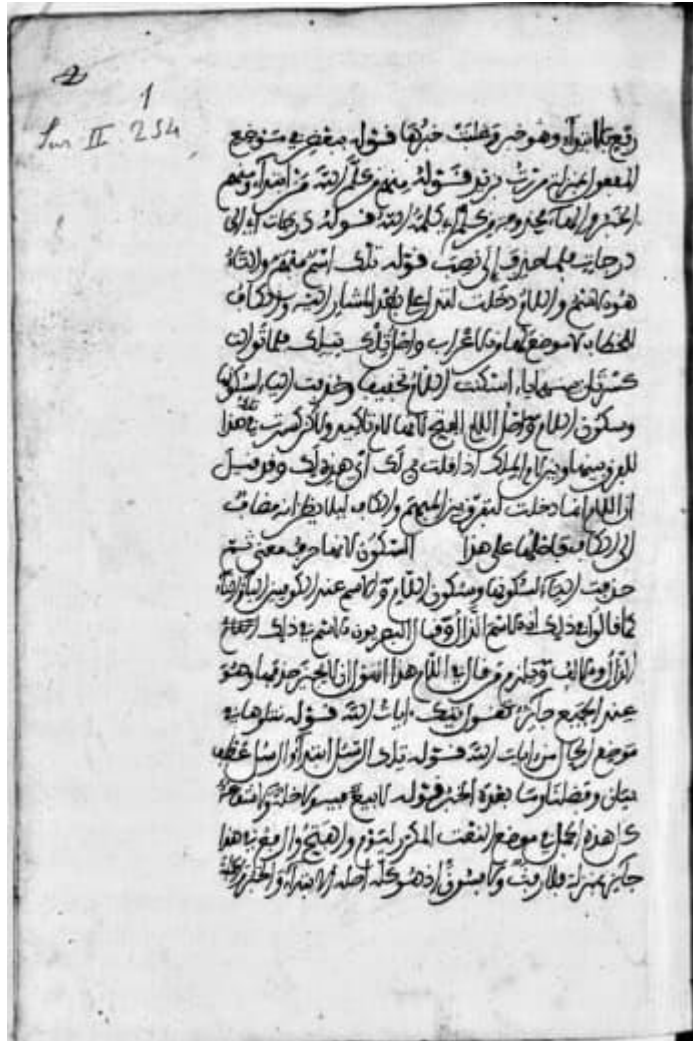 1
Sur II 254
رفع بالابتداء وهو خبر وغلبت خبرها قوله بعض في موضع
المفعول بمنزلة مررت بزيد فقوله منهم من كلم الله من ابتداء ومنهم
الخبر والهاء محذوفة من كلم اي كلمه الله قوله درجات اي الى
درجات فلما حذف الى نصب قوله تلك اسم مبهم والتاء
هو الاسم واللام دخلت لتدل على بعد المشار اليه والكاف
للخطاب لا موضع لها من الاعراب واصل تلك تيلك فلما توالت
كسرتان بينهما ياء اسكنت اللام تخفيفا وحذفت الياء لسكونها
وسكون اللام واصل اللام الفتح لانها لام تاكيد ولكن كسرت في هذا
للفرق بينها وبين لام الملك اذا قلت تي لك اي هذه لك وقد قيل
ان اللام انما دخلت لتفرق بين المبهم والكاف ليلا يظن انه مضاف
الى الكاف فاصلها على هذا السكون لانها حرف معنى ثم
حذفت الياء لسكونها وسكون اللام والاسم عند الكوفيين التاء
كما قالوا في ذلك ان الاسم الذال وقال البصريون الاسم في ذلك
الذال والالف ويلزم من قال في اللام هذا القول ان لا يجيز حذفها وهو
عند الجميع جايز تقول تيك ايات الله قوله نتلوها في
موضع الحال من ايات الله قوله تلك الرسل ابتداء والرسل عطف
بيان وفضلنا وما بعده الخبر قوله لا بيع فيه ولا خلة ولا شفاعة
كل هذه الجمل في موضع النعت المكرر ليوم والفتح والرفع في هذا
جايز بمنزلة فلا رفث ولا فسوق اذ هو كله اصله الابتداء والخبر